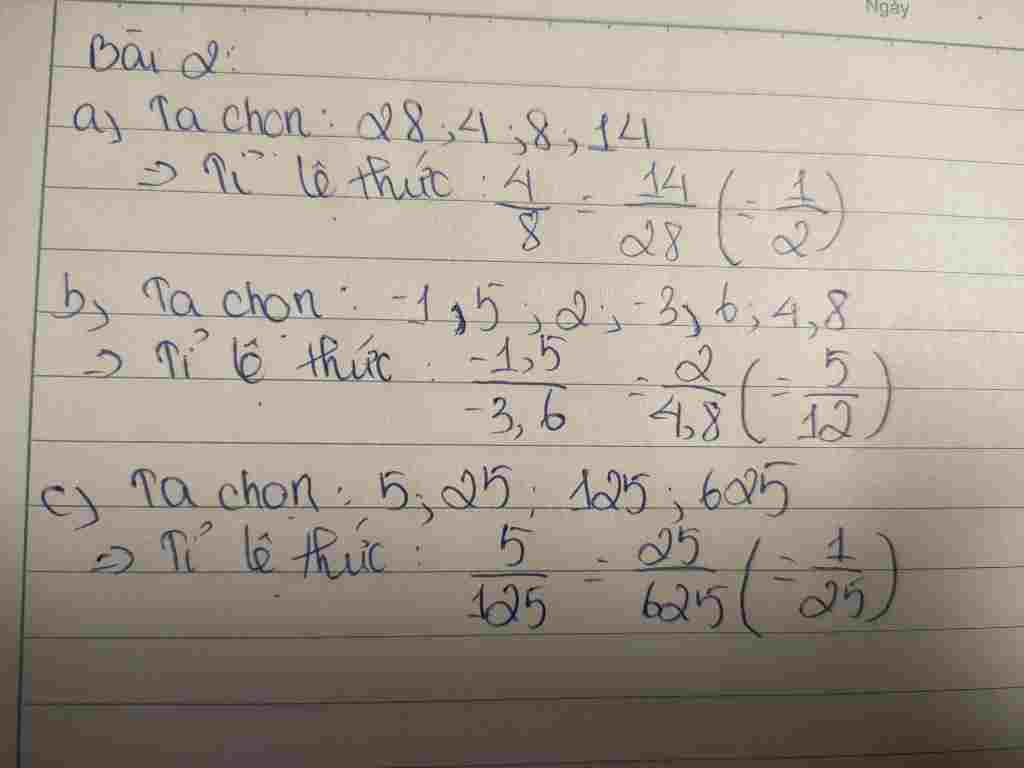 Ngày
Bài 2:
a, Ta chọn: 28; 4; 8; 14
=> Tỉ lệ thức: 4/8 = 14/28 (= 1/2)
b, Ta chọn: -1,5; 2; -3,6; 4,8
=> Tỉ lệ thức: -1,5/-3,6 = 2/4,8 (= 5/12)
c, Ta chọn: 5; 25; 125; 625
=> Tỉ lệ thức: 5/125 = 25/625 (= 1/25)